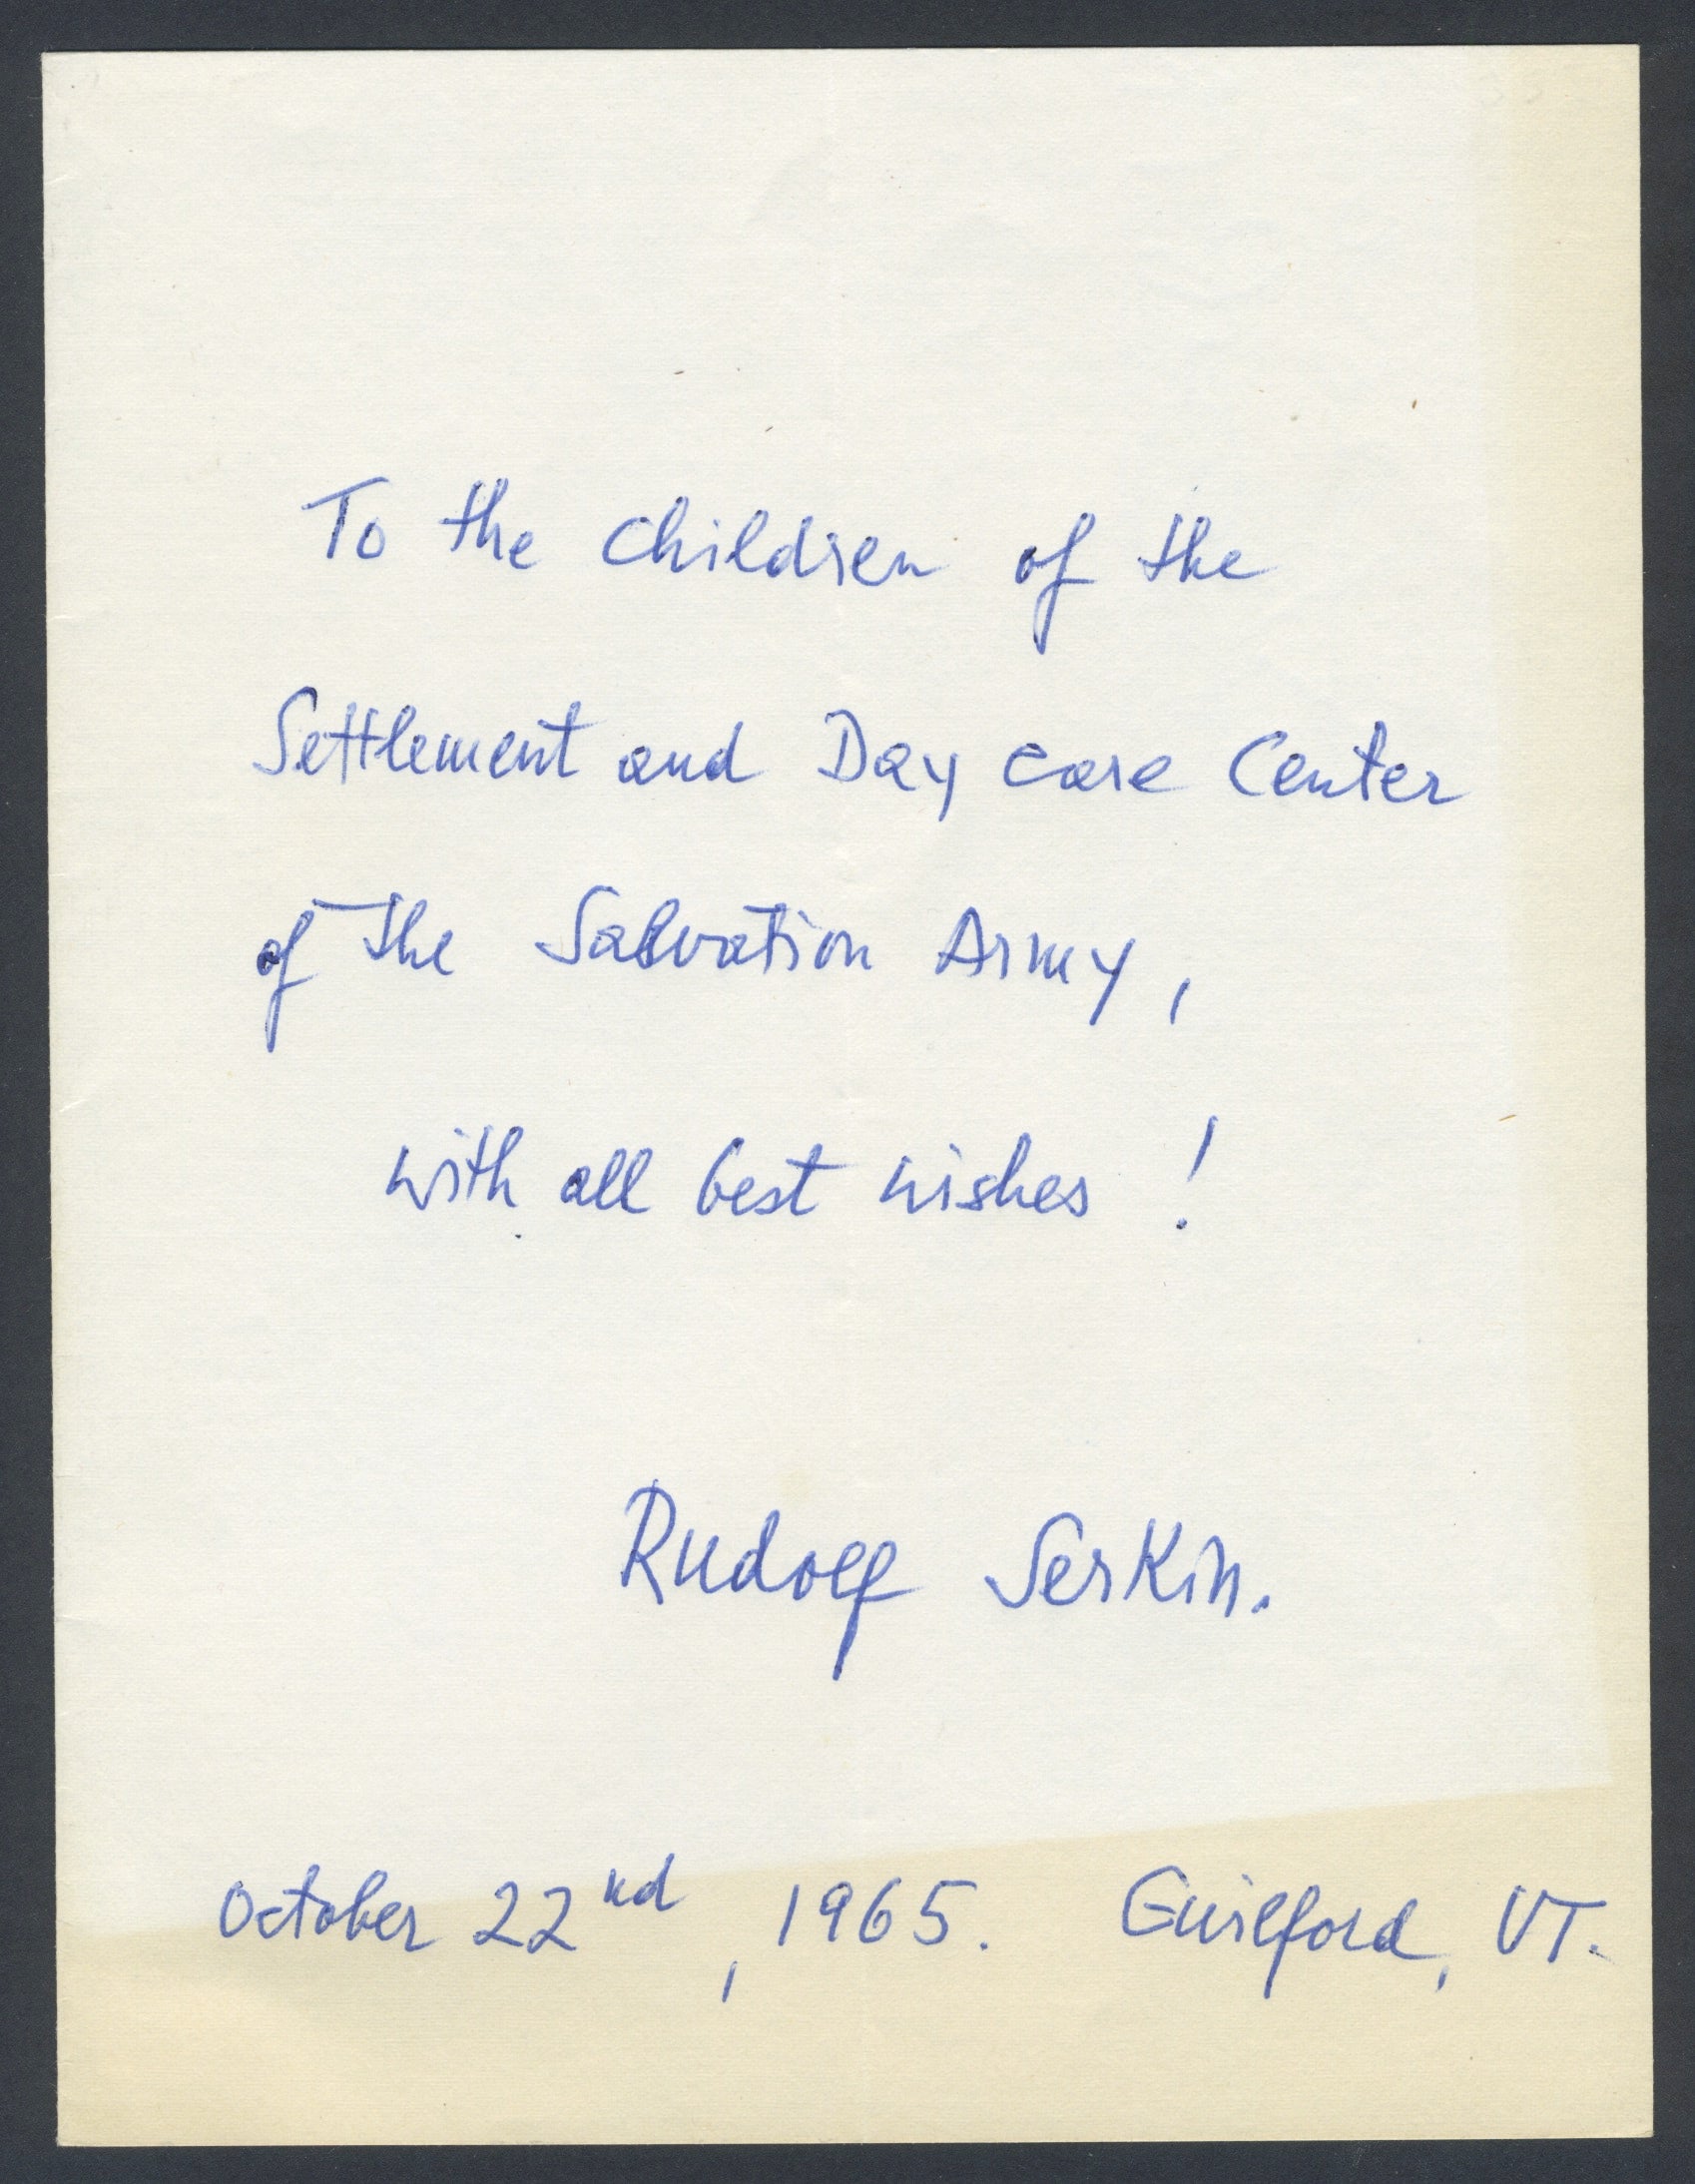 To the children of the
Settlement and Day care Center
of the Salvation Army,
with all best wishes!
Rudolf Serkin.
October 22nd, 1965. Guilford, VT.